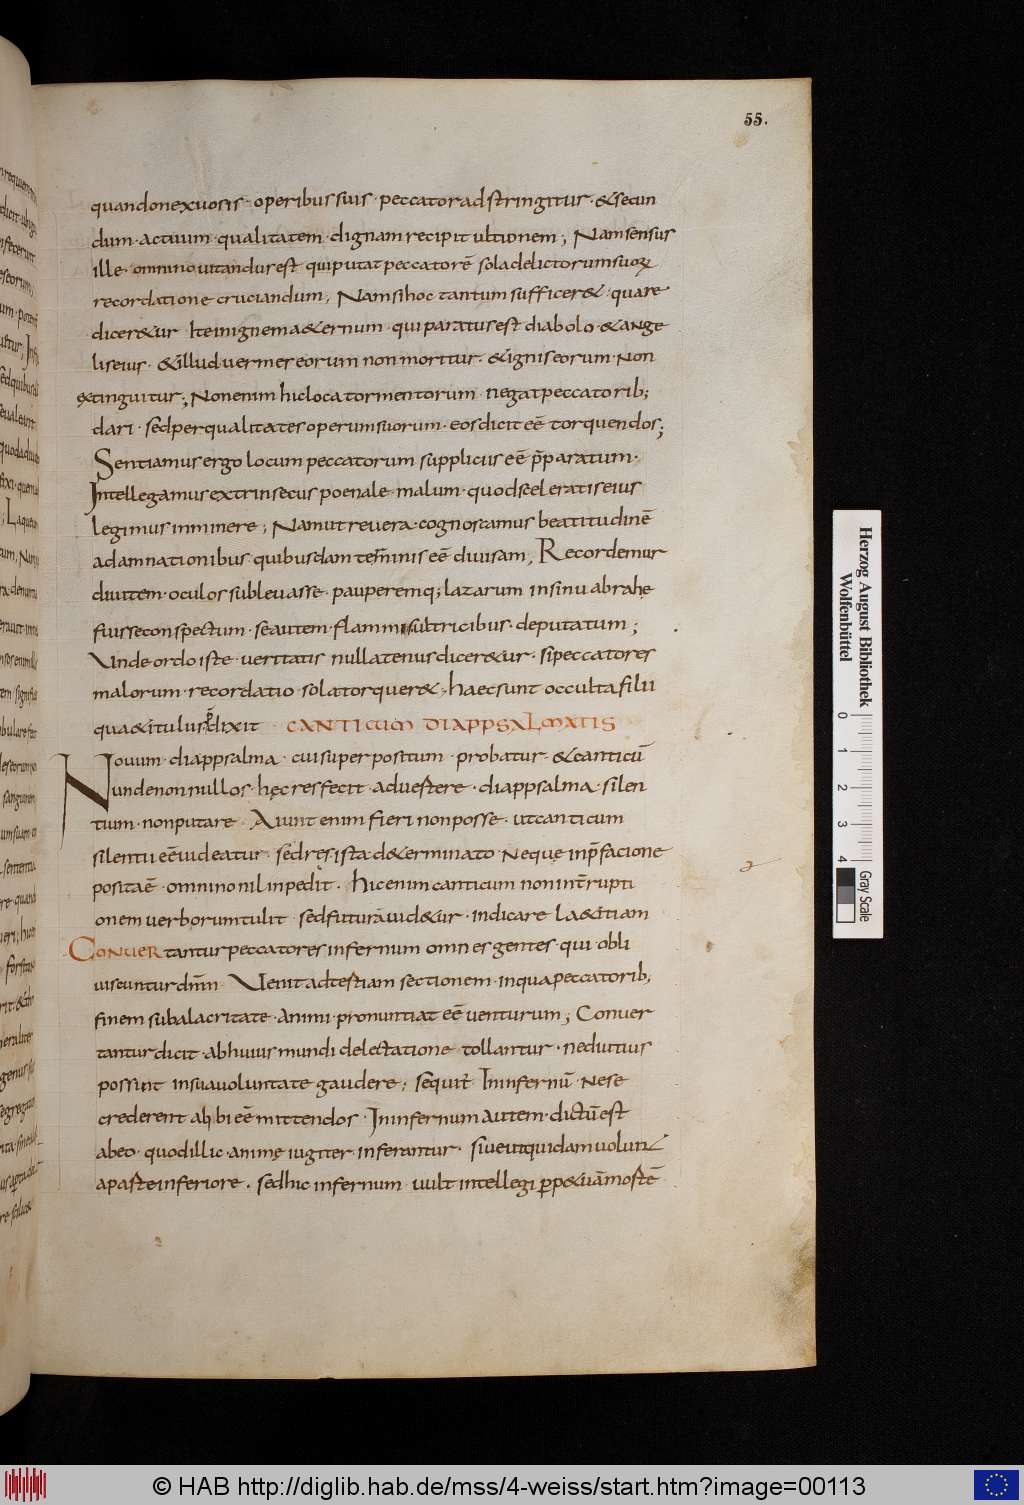 55.
quando nexuosis · operibus suis · peccator adstringitur · & secun
dum · actuum · qualitatem · dignam recipit ultionem ; Nam sensus
ille · omnino uitandus est qui putat peccatorē sola delictorum suorꝝ
recordatione cruciandum ; Nam si hoc tantum sufficer& · quare
dicer&ur Ite in ignem a&ernum · qui paratus est diabolo · & ange
lis eius · & illud uermes eorum non moritur · & ignis eorum · Non
extinguitur ; Non enim hic loca tormentorum negat peccatorib;
dari · sed per qualitates operum suorum · eos dicit eē torquendos ;
Sentiamus ergo locum peccatorum suppliciis eē p̄paratum ·
Intellegamus extrinsecus poenale malum · quod sceleratis eius
legimus inminere ; Nam ut reuera cognoscamus beatitudinē
a damnationibus quibusdam terminis eē diuisam ; Recordemur
diuitem · oculos subleuasse · pauperemq; lazarum in sinu abrahę
fuisse conspectum · se autem · flammis ultricibus · deputatum ;
Unde ordo iste ueritatis nullatenus dicer&ur · si peccatores
malorum · recordatio sola torquer& ; haec sunt occulta filii
quae titulus p̄dixit CANTICUM DIAPPSALMATIS
Nouum · diappsalma · cui super positum probatur · & canticū
unde non nullos · hęc res fecit · aduertere · diappsalma · silen
tium · non putare Aiunt enim fieri non posse · ut canticum
silentii eē uideatur · sed res ista d&erminato Neque in p̄facione
posita ē omnino nil inpedit . Hic enim canticum non int̄rrupti
onem uerborum tulit sed futurā uid&ur · indicare la&itiam
Conuertantur peccatores in infernum omnes gentes · qui obli
uiscuntur dn̄m Uenit ad tertiam sectionem · in qua peccatorib;
finem sub alacritate · animi · pronuntiat eē uenturum ; Conuer
tantur dicit · ab huius mundi delectatione tollantur · ne diutius
possint in sua uoluntate gaudere ; sequit̄ In infernū Ne se
crederent alibi eē mittendos · In infernum autem · dictū est
ab eo · quod illic · animę iugiter inferantur · siue ut quidam uolunt
a parte inferiore . sed hic infernum uult intellegi perp&uā mortē
Herzog August Bibliothek
Wolfenbüttel
0 1 2 3 4
Gray Scale
© HAB http://diglib.hab.de/mss/4-weiss/start.htm?image=00113